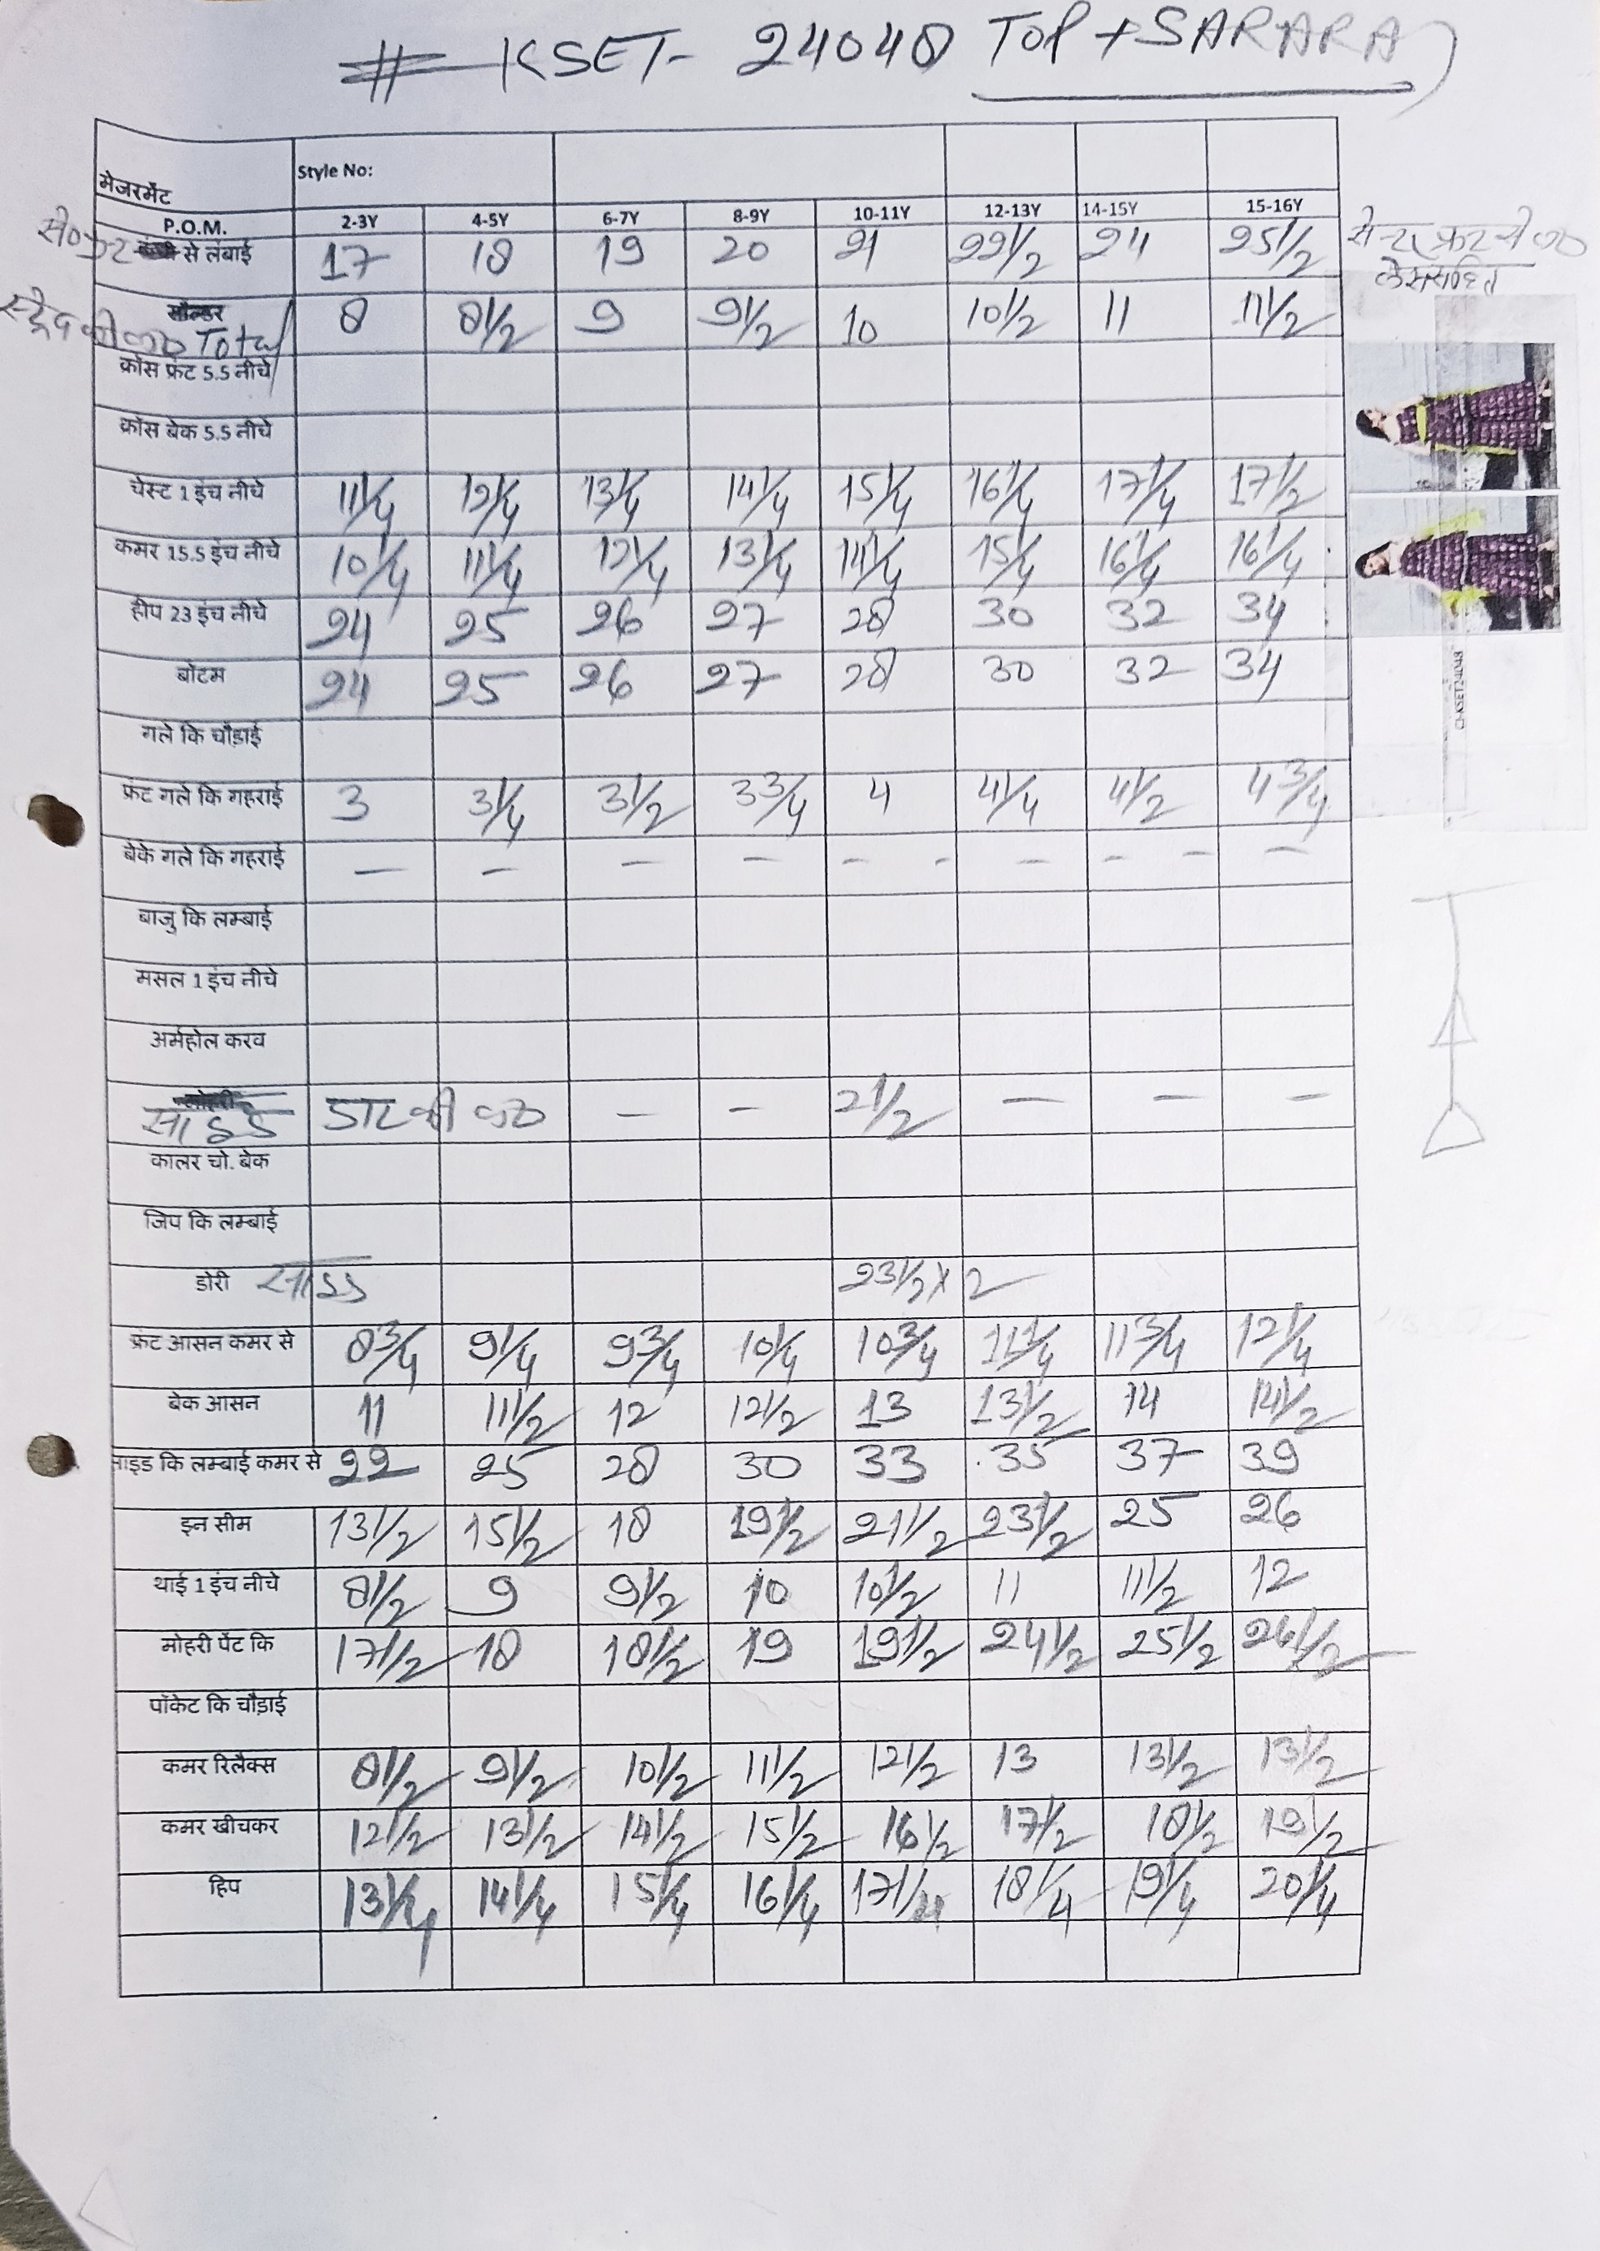 # KSET- 24048 TOP + SARARA
मेजरमेंट Style No:
P.O.M. 2-3Y 4-5Y 6-7Y 8-9Y 10-11Y 12-13Y 14-15Y 15-16Y
से० फ्रंट से लंबाई 17 18 19 20 21 22 1/2 24 25 1/2
Total 8 8 1/2 9 9 1/2 10 10 1/2 11 11 1/2
क्रोस फ्रंट 5.5 नीचे
क्रोस बेक 5.5 नीचे
चेस्ट 1 इंच नीचे 11 1/4 12 1/4 13 1/4 14 1/4 15 1/4 16 1/4 17 1/4 17 1/2
कमर 15.5 इंच नीचे 10 1/4 11 1/4 12 1/4 13 1/4 14 1/4 15 1/4 16 1/4 16 1/4
हीप 23 इंच नीचे 24 25 26 27 28 30 32 34
बोटम 24 25 26 27 28 30 32 34
गले कि चौड़ाई
फ्रंट गले कि गहराई 3 3 1/4 3 1/2 3 3/4 4 4 1/4 4 1/2 4 3/4
बेके गले कि गहराई - - - - - - - - - -
बाजु कि लम्बाई
मसल 1 इंच नीचे
अर्महोल करव
साइड डाट की - - 2 1/2 - - -
कालर चो. बेक
जिप कि लम्बाई
डोरी साइड 23 1/2 x 2
फ्रंट आसन कमर से 8 3/4 9 1/4 9 3/4 10 1/4 10 3/4 11 1/4 11 3/4 12 1/4
बेक आसन 11 11 1/2 12 12 1/2 13 13 1/2 14 14 1/2
साइड कि लम्बाई कमर से 22 25 28 30 33 35 37 39
इन सीम 13 1/2 15 1/2 18 19 1/2 21 1/2 23 1/2 25 26
थाई 1 इंच नीचे 8 1/2 9 9 1/2 10 10 1/2 11 11 1/2 12
मोहरी पेंट कि 17 1/2 18 18 1/2 19 19 1/2 24 1/2 25 1/2 26 1/2
पॉकेट कि चौड़ाई
कमर रिलैक्स 8 1/2 9 1/2 10 1/2 11 1/2 12 1/2 13 13 1/2 13 1/2
कमर खीचकर 12 1/2 13 1/2 14 1/2 15 1/2 16 1/2 17 1/2 18 1/2 19 1/2
हिप 13 1/4 14 1/4 15 1/4 16 1/4 17 1/4 18 1/4 19 1/4 20 1/4